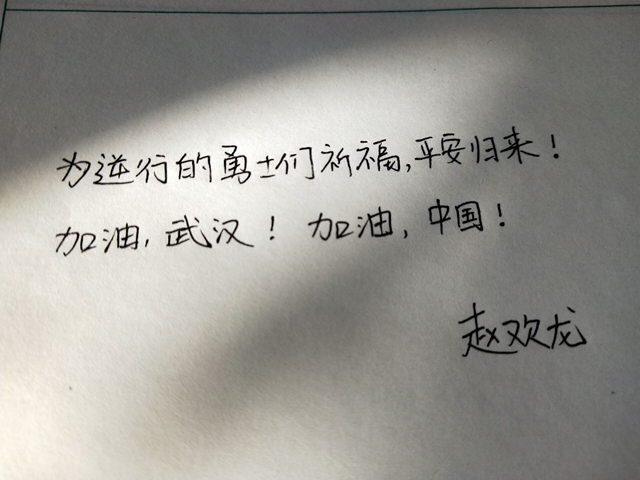 为逆行的勇士们祈福,平安归来!
加油,武汉! 加油,中国!
赵欢龙